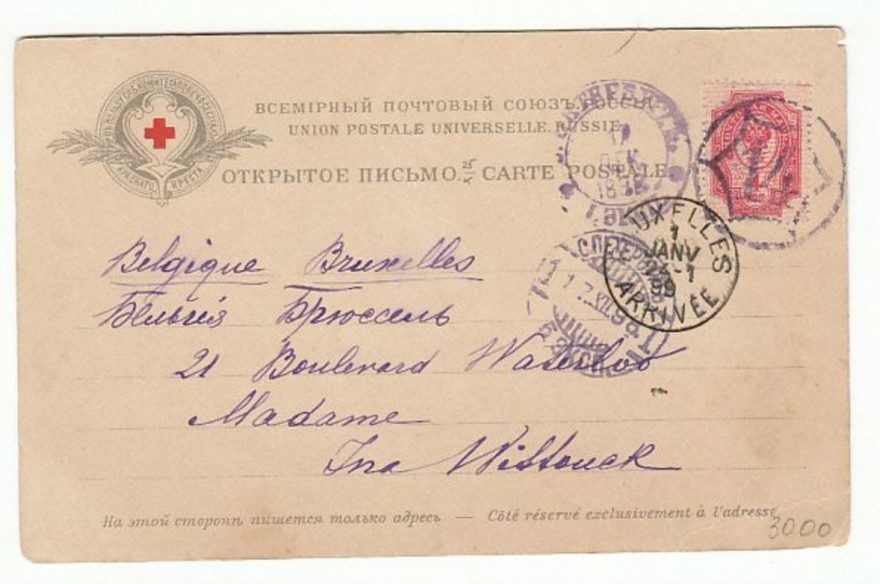 ВСЕМІРНЫЙ ПОЧТОВЫЙ СОЮЗЪ. РОССІЯ
UNION POSTALE UNIVERSELLE. RUSSIE
ОТКРЫТОЕ ПИСЬМО. CARTE POSTALE
КРАСНАГО КРЕСТА
17 ДЕК 1898
UXELLES
1
JANV
99
ARRIVÉE
Belgique Bruxelles
Бельгія Брюссель
21 Boulevard Waterloo
Madame
Ina Wittouck
На этой сторонѣ пишется только адресъ — Côté réservé exclusivement à l'adresse
3000